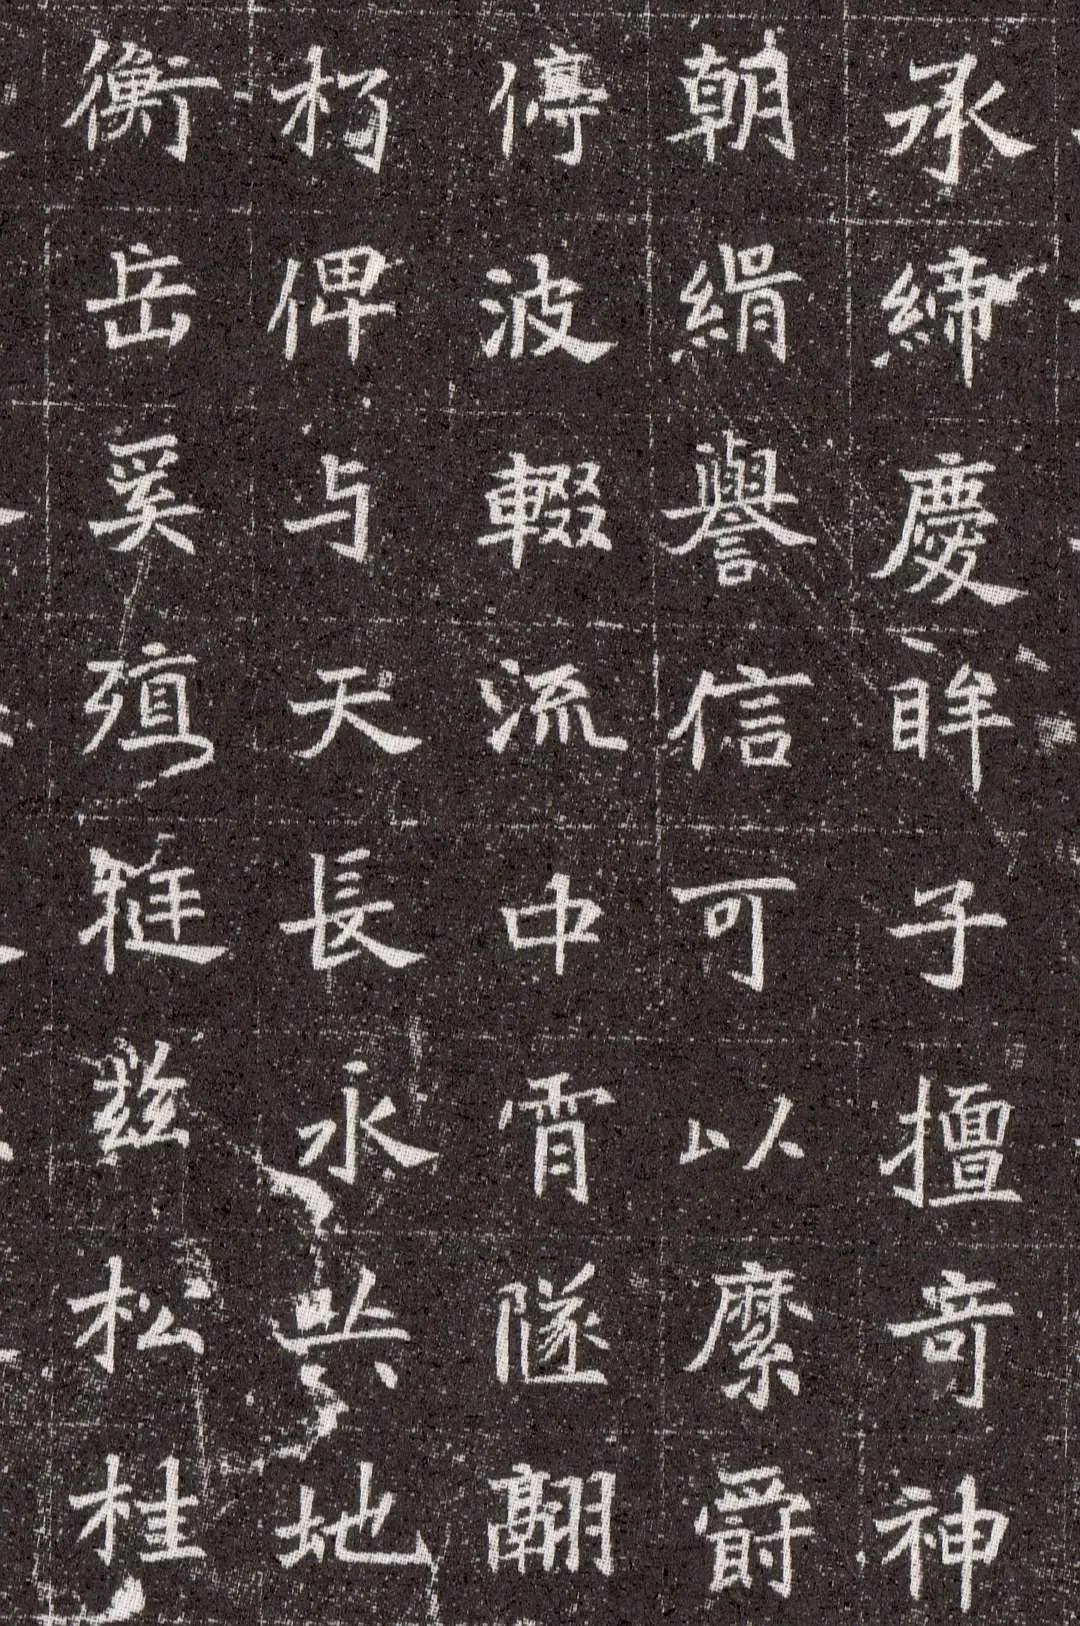 承締慶眸子擅奇神
朝絹譽信可以縻爵
停波輟流中霄隧翮
朽俾与天長永與地
衡岳奚殖茲松桂